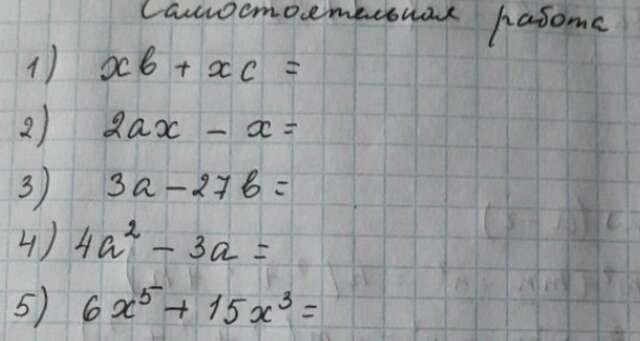 Самостоятельная работа
1) xb + xc =
2) 2ax - x =
3) 3a - 27b =
4) 4a² - 3a =
5) 6x⁵ + 15x³ =